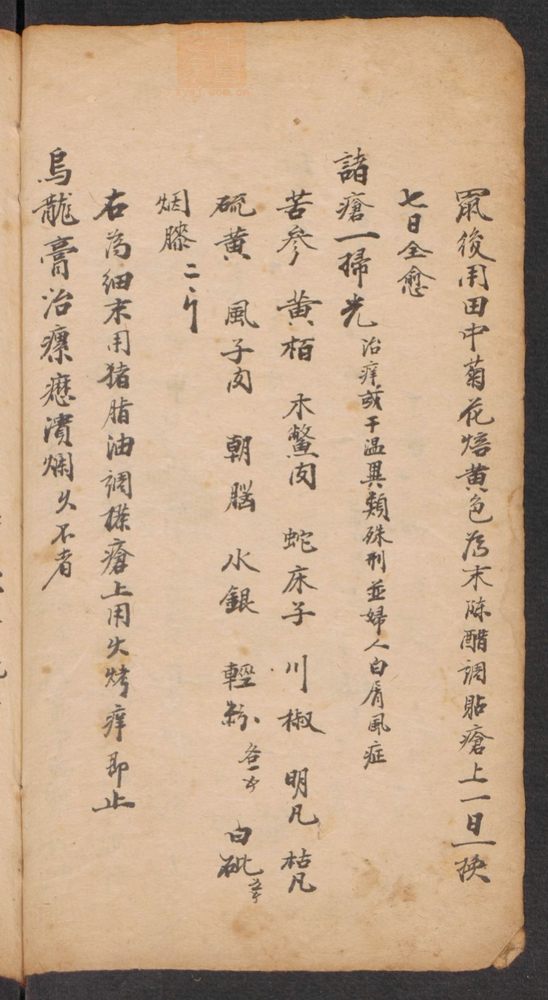 鼠後用田中菊花焙黄色為末陈醋調貼瘡上一日一换
七日全愈
諸瘡一掃光 治痒或干温異類殊刑並婦人白屑風症
苦參 黄栢 木鱉肉 蛇床子 川椒 明凡 枯凡
硫黄 風子肉 朝腦 水銀 輕粉 各一 白砒
烟膝 二
右為细末用猪脂油調搽瘡上用火烤痒即止
烏龍膏治瘰癧潰爛久不者